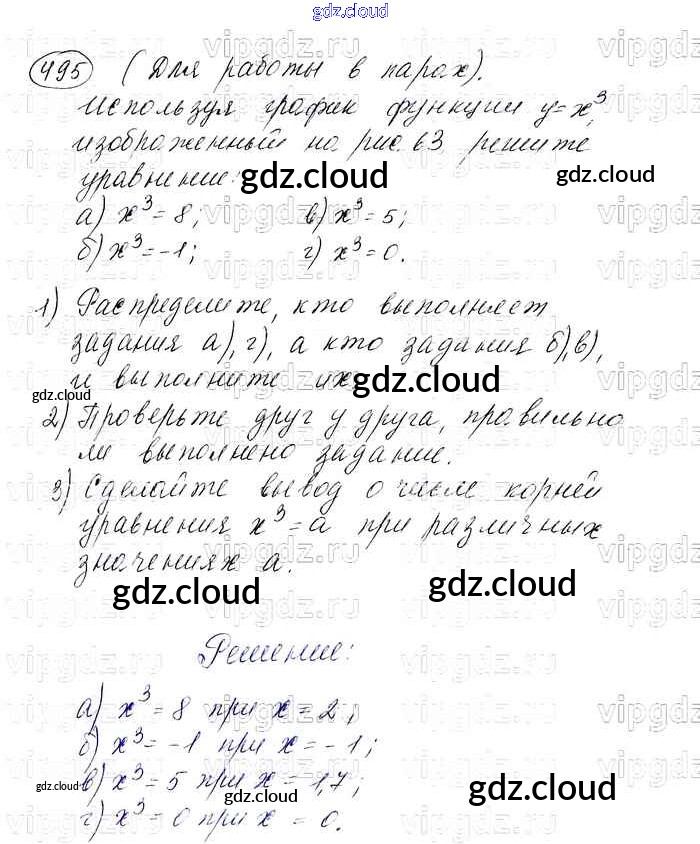 gdz.cloud
495 (Для работы в парах).
Используя график функции y=x³,
изображенный на рис. 63 решите
уравнение:
gdz.cloud gdz.cloud
а) x³ = 8; в) x³ = 5;
б) x³ = -1; г) x³ = 0.
1) Распределите, кто выполняет
задания а), г), а кто задания б), в),
и выполните их.
gdz.cloud gdz.cloud
2) Проверьте друг у друга, правильно
ли выполнено задание.
3) Сделайте вывод о числе корней
уравнения x³ = a при различных
значениях a.
gdz.cloud gdz.cloud
Решение:
а) x³ = 8 при x = 2;
б) x³ = -1 при x = -1;
в) x³ = 5 при x = 1,7;
gdz.cloud gdz.cloud gdz.cloud
г) x³ = 0 при x = 0.